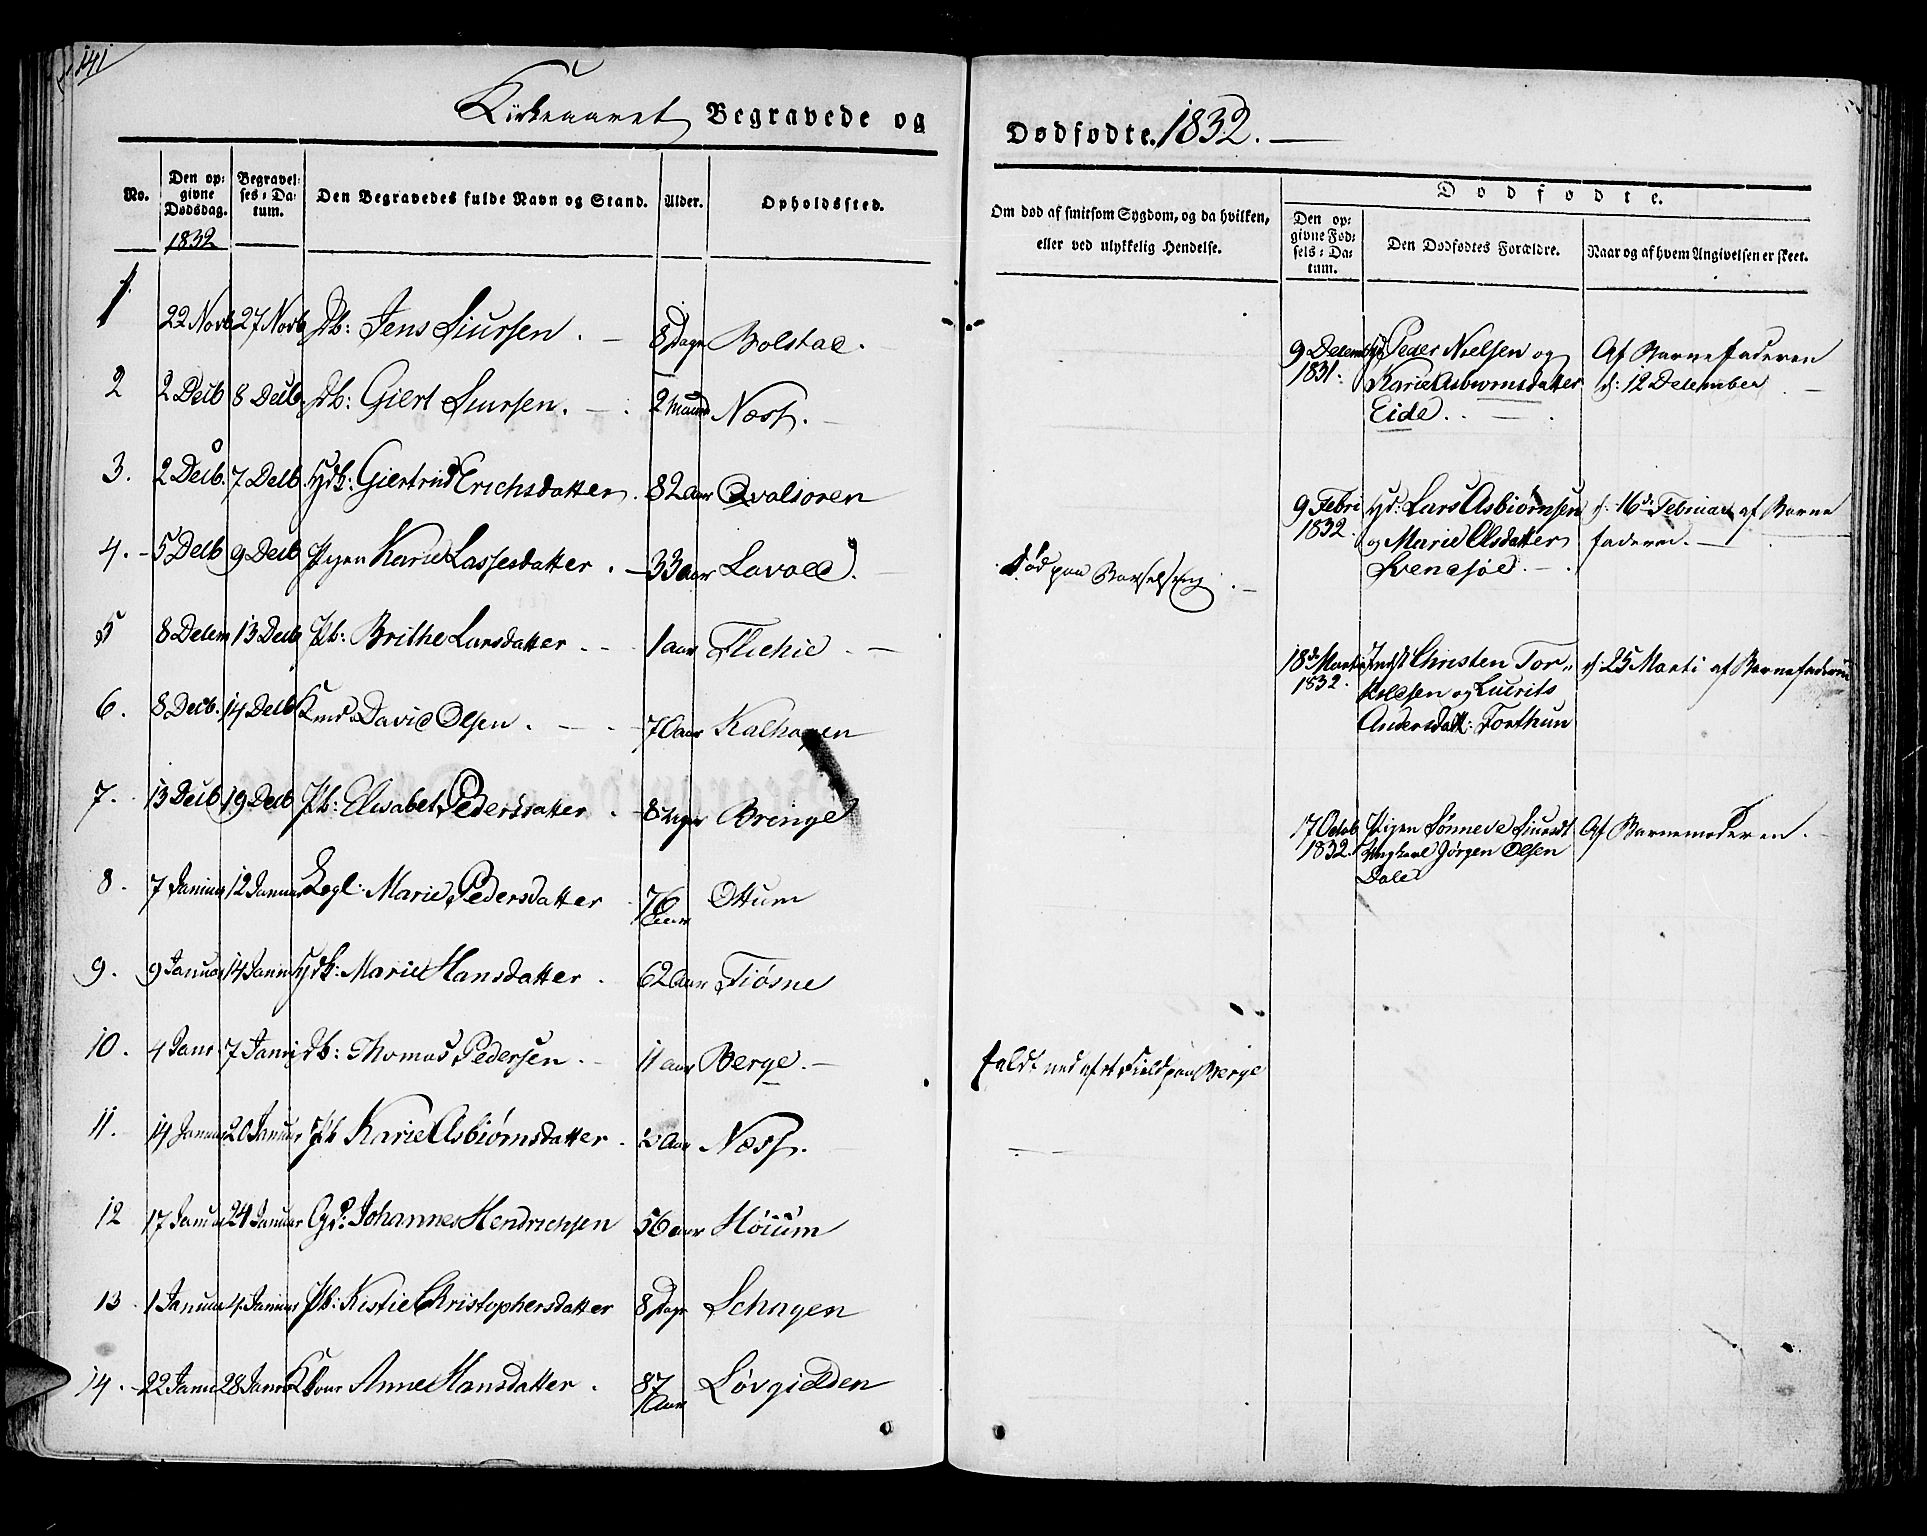 141
Kirkeaaret Begravede og Dødfødte. 1832.
No.
Den opgivne Dødsdag.
1832
Begravelses-Datum.
Den Begravedes fulde Navn og Stand.
Alder.
Opholdssted.
Om død af smitsom Sygdom, og da hvilken, eller ved ulykkelig Hendelse.
Dødfødte.
Den opgivne Fødsels-Datum.
Den Dødfødtes Forældre.
Naar og af hvem Angivelsen er skeet.
1 22 Novb 27 Novb Db: Jens Siursen. 8 Dage Bolstad.
2 2 Decb 8 Decb Db: Giert Siursen. 2 Maand Næss.
3. 2 Decb. 7 Decb. Hdk: Giertrud Erichsdatter. 82 Aar Qvalsoren
4. 5 Decb 9 Decb Pigen Karie Lassesdatter. 33 aar Lavold. død paa Barselseng.
5 8 Decem 13 Decb Pb: Brithe Larsdatter 1 aar Flichie
6. 8 Decb. 14 Decb Kmd David Olsen. 70 aar Kalhagen
7. 13 Decb 19 Decb Pb: Elisabet Pedersdatter 8 Dage Bringe
8. 7 Januar 12 Januar Legl: Marie Pedersdatter 76 Aar Ottum
9. 9 Januar 14 Januar Hdk: Marie Hansdatter. 62 Aar Fiøsne
10. 4 Janr 7 Janr Db: Thomas Pedersen. 11 aar Berge. faldt ned af et Field paa Berge
11. 14 Januar 20 Januar Pb Karie Asbiørnsdatter. Aar Næss.
12 17 Januar 24 Januar Gd: Johannes Hendrichsen 56 aar Høium
13 1 Januar 4 Januar Pb: Kestie Christophersdatter 8 Dage Schagen
14. 22 Janu 28 Janr Kone Anne Hansdatter. 87 Aar Løvgielden
9 Decemb 1831.
Peder Nielsen og
Karie Asbiørnsdatter
Eide.
Af Barnefaderen
d: 12 December
9 Febri 1832.
Hd: Lars Asbiørnsen
og Marie Olsdatter
Svendsøe.
d: 16de Februar af Barne
faderen.
18de Marti 1832.
Indst Christen Tor-
kildsen og Lucrits
Andersdatt: Torthun
d: 25 Marti af Barnefaderen
17 Octob 1832.
Pigen Sønneve Siursdt
Ungkarl Jørgen Olsen
Dale
Af Barnemoderen.